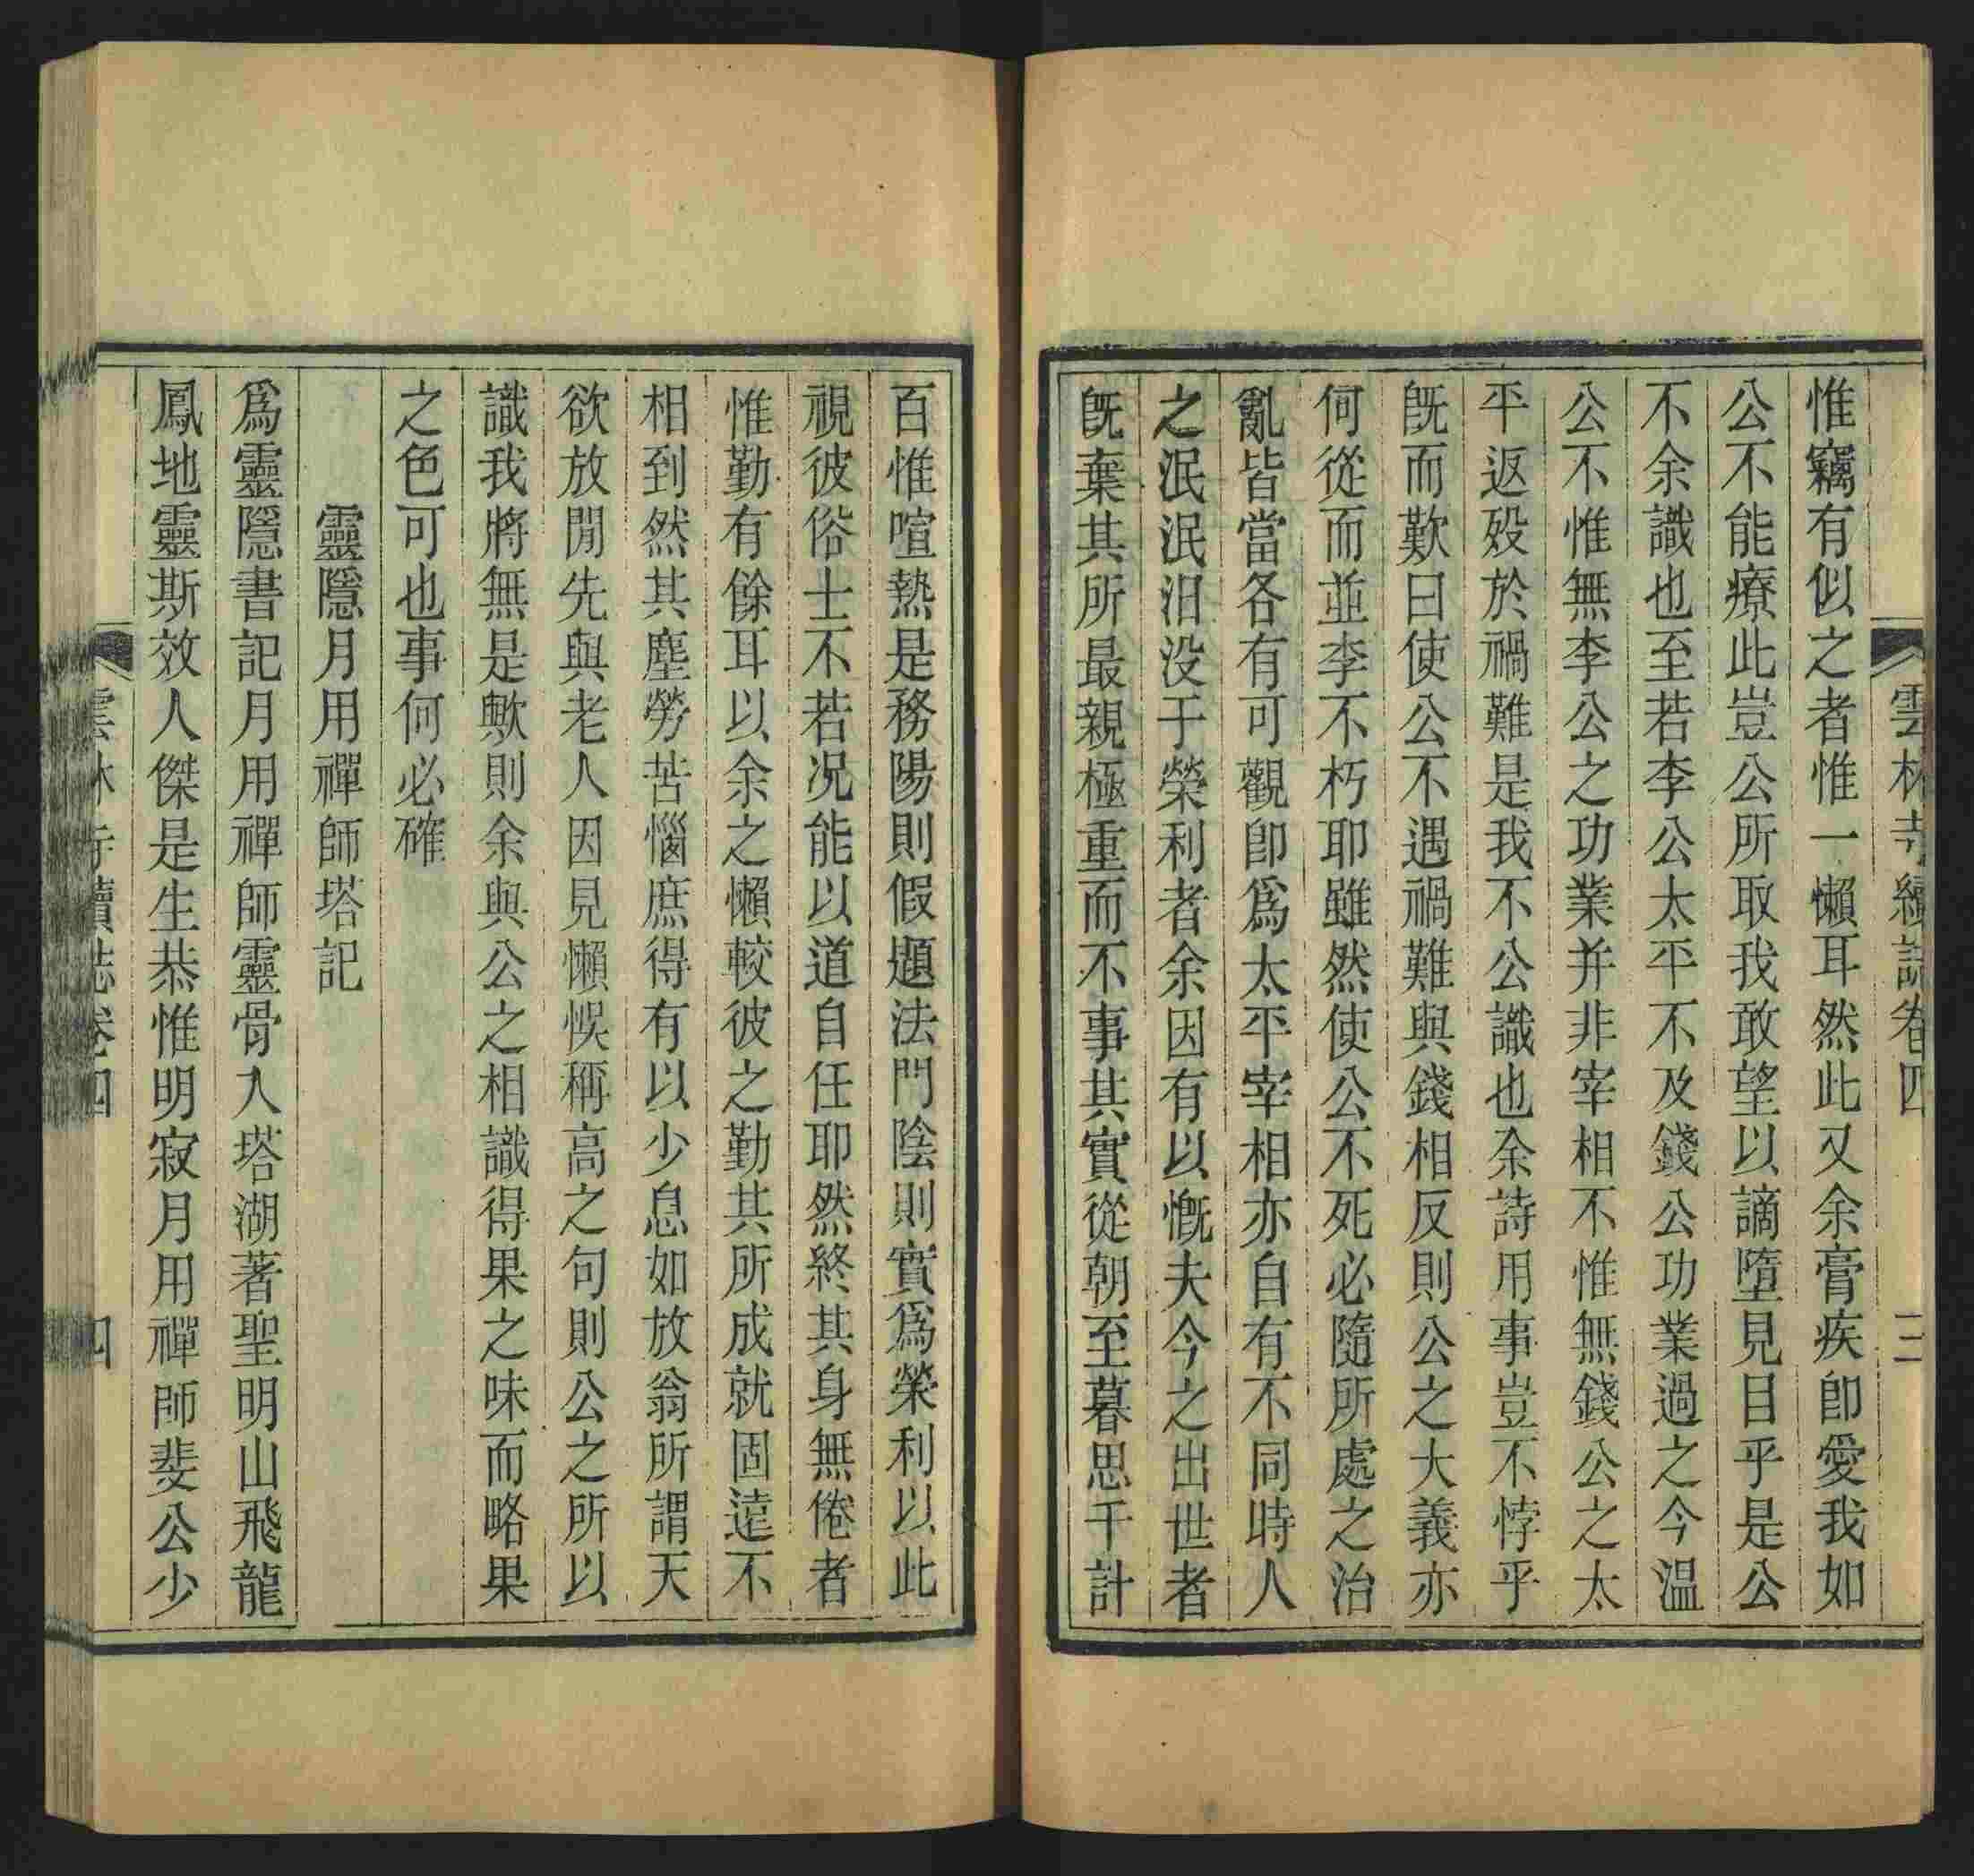 雲林寺續誌卷四 三
惟竊有似之者惟一懶耳然此又余膏疾卽愛我如
公不能療此豈公所取我敢望以謫墮見目乎是公
不余識也至若李公太平不及錢公功業過之今溫
公不惟無李公之功業并非宰相不惟無錢公之太
平返歿於禍難是我不公識也余詩用事豈不悖乎
旣而歎曰使公不遇禍難與錢相反則公之大義亦
何從而並李不朽耶雖然使公不死必隨所處之治
亂皆當各有可觀卽爲太平宰相亦自有不同時人
之泯泯汨没于榮利者余因有以慨夫今之出世者
旣棄其所最親極重而不事其實從朝至暮思千計
百惟喧熱是務陽則假題法門陰則實爲榮利以此
視彼俗士不若况能以道自任耶然終其身無倦者
惟勤有餘耳以余之懶較彼之勤其所成就固遠不
相到然其塵勞苦惱庶得有以少息如放翁所謂天
欲放閒先與老人因見懶悞稱高之句則公之所以
識我將無是歟則余與公之相識得果之味而略果
之色可也事何必確
靈隱月用禪師塔記
爲靈隱書記月用禪師靈骨入塔湖著聖明山飛龍
鳳地靈斯效人傑是生恭惟明寂月用禪師斐公少
雲林寺續誌卷四 四